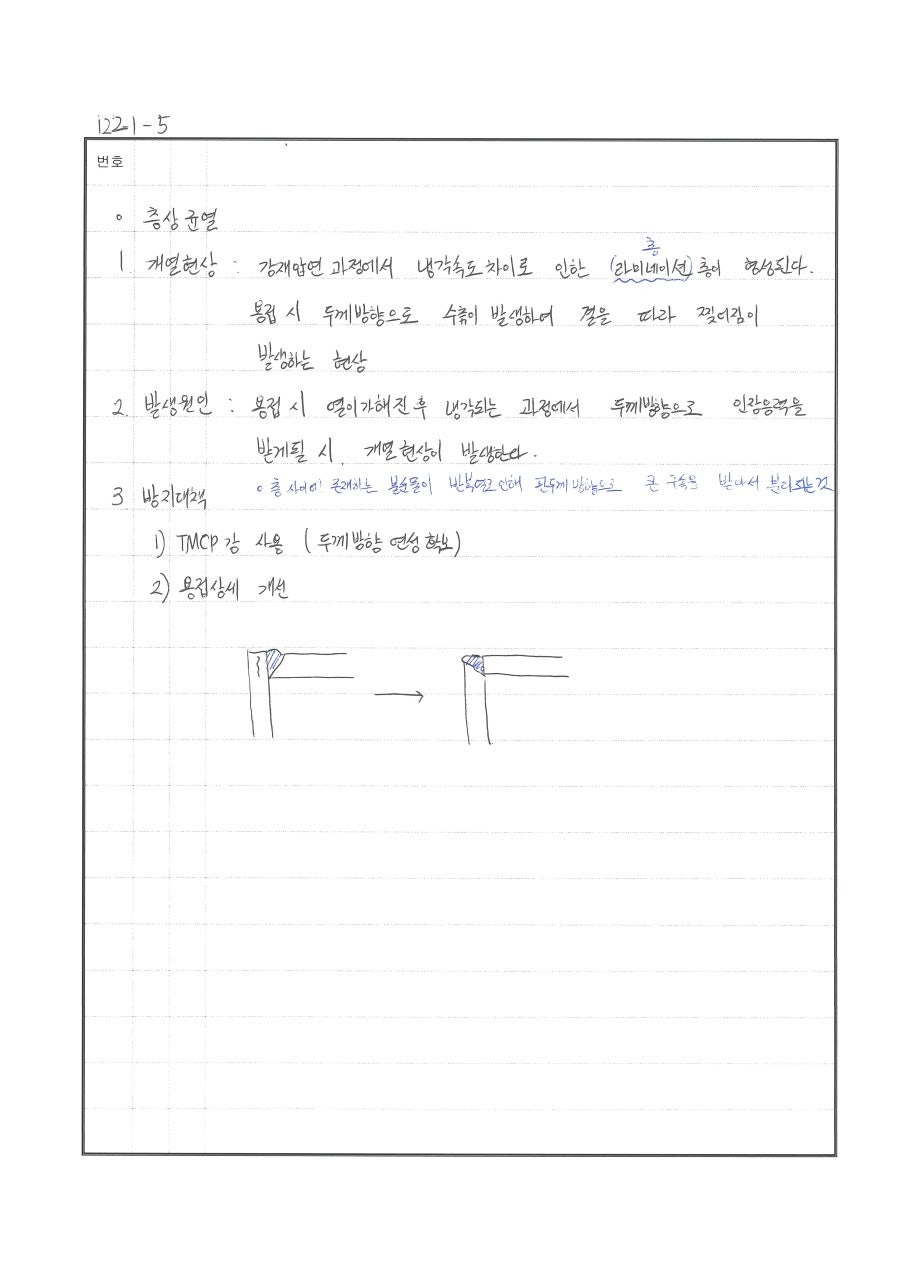 122-1-5
번호
o 층상균열
층
1. 개열현상 : 강재압연 과정에서 냉각속도차이로 인한 (라미네이션)층이 형성된다.
용접 시 두께방향으로 수축이 발생하여 결을 따라 찢어짐이
발생하는 현상
2. 발생원인 : 용접 시 열이가해진 후 냉각되는 과정에서 두께방향으로 인장응력을
받게될 시 개열현상이 발생한다.
o 층 사이에 존재하는 불순물이 반복열로 인해 판두께 방향으로 큰 구속을 받아서 분리되는것
3 방지대책
1) TMCP강 사용 (두께방향 연성 확보)
2) 용접상세 개선